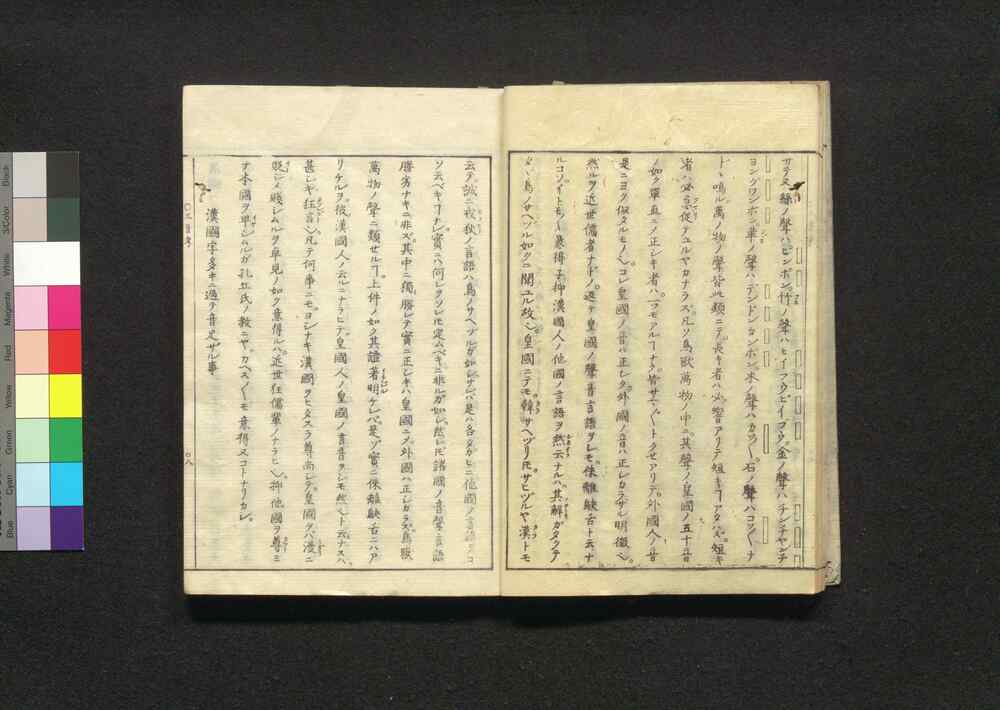 サテ又絲ノ聲ハピンポン。竹ノ聲ハヒイフウピイプウ。金ノ聲ハチンチヤンチ
ヨンクワンボン。革ノ聲ハデンドンタンポン。木ノ聲ハカツ〳〵。石ノ聲ハコツ〳〵ナ
ド、鳴ル萬ノ物ノ聲皆此類ニテ。長キ者ハ必響アリテ。短キヿアタハズ。短キ
者ハ必急促テユルヤカナラズ。凡ソ鳥獸萬物ノ中ニ。其聲ノ皇國ノ五十音
ノ如ク單直ニ正シキ者ハ。一ツモアルヿナク。皆サマ〴〵トクセアリテ。外國人ノ音
是ニヨク似タルモノ也。コレ皇國ノ音ハ正シク。外國ノ音ハ正シカラザル明徴也。
然ルヲ近世儒者ナドノ。返テ皇國ノ聲音言語ヲシモ。侏離鴃舌ト云ナ
ルコソ。イトモ〳〵心得子。抑漢國人ノ他國ノ言語ヲ然云ナルハ。其解ガタクテ
タヾ鳥ノサヘヅル如クニ聞ユル故也。皇國ニテモ。韓サヘヅリ氏。サヒヅルヤ漢トモ
云テ。誠ニ戎狄ノ言語ハ鳥ノサヘヅルガ如シ。サレバ是ハ各タガヒニ他國ノ言語ヲコ
ソ云ベキヿナレ。實ニハ何レヲソレトモ定ムベキニ非ルガ如シ。然レドモ諸國ノ音聲言語
勝劣ナキニ非ズ。其中ニ獨勝レテ實ニ正シキハ皇國ニテ。外國ハ正シカラズ。鳥獸
萬物ノ聲ニ類セルヿ。上件ノ如ク其證著明ケレバ。是ゾ實ニ侏離鴃舌ニハア
リケル。ヲ彼漢國人ノ云ルニナラヒテ皇國人ノ皇國ノ言音ヲシモ然也ト云ナスハ
甚シキ狂言也。凡テ何事ニモ。ヨシナキ漢國ヲヒタスラ尊尚シテ。皇國ヲバ漫ニ
貶シメ賤シムルヲ卓見ノ如ク意得ルハ。近世狂儒輩ノナラヒ也。抑他國ヲ尊ミ
テ本國ヲ卑シムルガ孔丘氏ノ教ニヤ。カヘス〴〵モ意得ヌコトナリカシ。
漢國字多キニ過テ音足ザル事